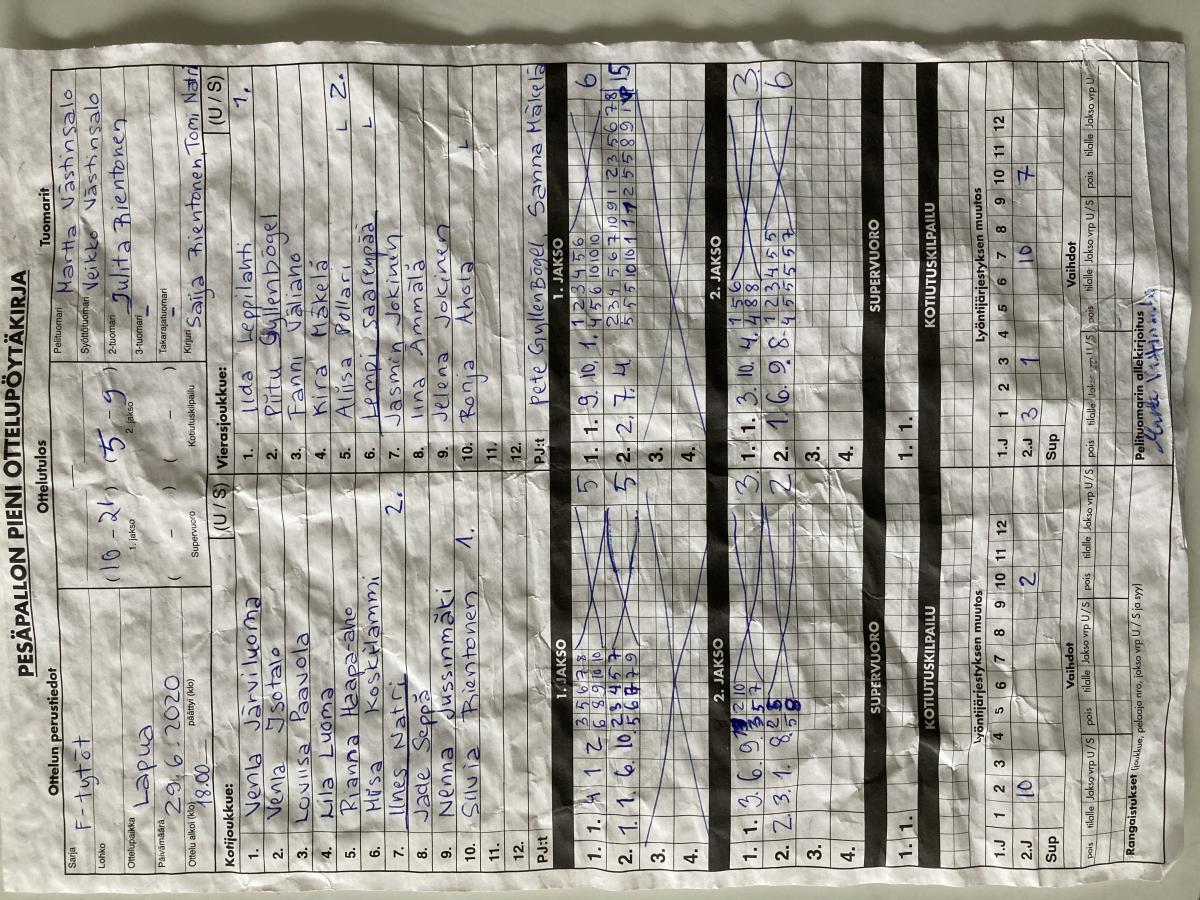 PESÄPALLON PIENI OTTELUPÖYTÄKIRJA
Ottelun perustiedot
Sarja F-tytöt
Lohko
Ottelupaikka Lapua
Päivämäärä 29.6.2020
Ottelu alkoi (klo) 18.00 päättyi (klo)
Ottelutulos
(10 - 21) (5 - 9)
1. jakso 2. jakso
( - ) ( - )
Supervuoro Kotiutuskilpailu
Tuomarit
Pelituomari Martta Västinsalo
Syöttötuomari Veikko Västinsalo
2-tuomari Julita Rientonen
3-tuomari
Takarajatuomari
Kirjuri Saija Rientonen, Tomi Natri
Kotijoukkue: (U / S)
1. Venla Järviluoma
2. Venla Isotalo
3. Loviisa Paavola
4. Lila Luoma
5. Rianna Haapa-aho
6. Miisa Koskilammi
7. Ines Natri L 2.
8. Jade Seppä
9. Nenna Jussinmäki
10. Silvia Rientonen 1.
11.
12.
PJ:t
Vierasjoukkue: (U / S)
1. Ilda Leppilahti 1.
2. Piitu Gyllenbögel
3. Fanni Väliaho
4. Kira Mäkelä
5. Aliisa Pollari L 2.
6. Lempi Saarenpää L
7. Jasmin Jokinen
8. Iina Ammälä
9. Jelena Jokinen
10. Ronja Ahola L
11.
12.
PJ:t Pete Gyllenbögel, Sanna Mäkelä
1. JAKSO
1. 1. 1 1 2 3 5 6 7 8 5
6 8 9 10 10
2. 1. 1. 6. 10. 2 3 4 5 7 5
3.
4.
1. JAKSO
1. 1. 9. 10. 1. 1 2 3 4 5 6 6
4 5 6 10 10 10
2. 2. 7. 4 2 3 4 5 6 7 10 9 1 2 3 5 6 7 8 15
3.
4.
2. JAKSO
1. 1. 3. 6. 9. 3.
2. 3. 1. 8. 2
3.
4.
2. JAKSO
1. 1. 3. 10. 4. 1 5 6 3
4 8 8
2. 1. 6. 9. 8. 1 2 3 4 5 5 6
4 5 5 5 5 7
3.
4.
SUPERVUORO
1. 1.
SUPERVUORO
1. 1.
KOTIUTUSKILPAILU
KOTIUTUSKILPAILU
Lyöntijärjestyksen muutos
1.J 1 2 3 4 5 6 7 8 9 10 11 12
2.J 10 2
Sup
Lyöntijärjestyksen muutos
1.J 1 2 3 4 5 6 7 8 9 10 11 12
2.J 3 1 10 7
Sup
Vaihdot
pois tilalle Jakso vrp U / S pois tilalle Jakso vrp U / S pois tilalle Jakso vrp U / S
Vaihdot
pois tilalle Jakso vrp U / S pois tilalle Jakso vrp U / S pois tilalle Jakso vrp U
Rangaistukset (joukkue, pelaaja nro, jakso vrp U / S ja syy)
Pelituomarin allekirjoitus